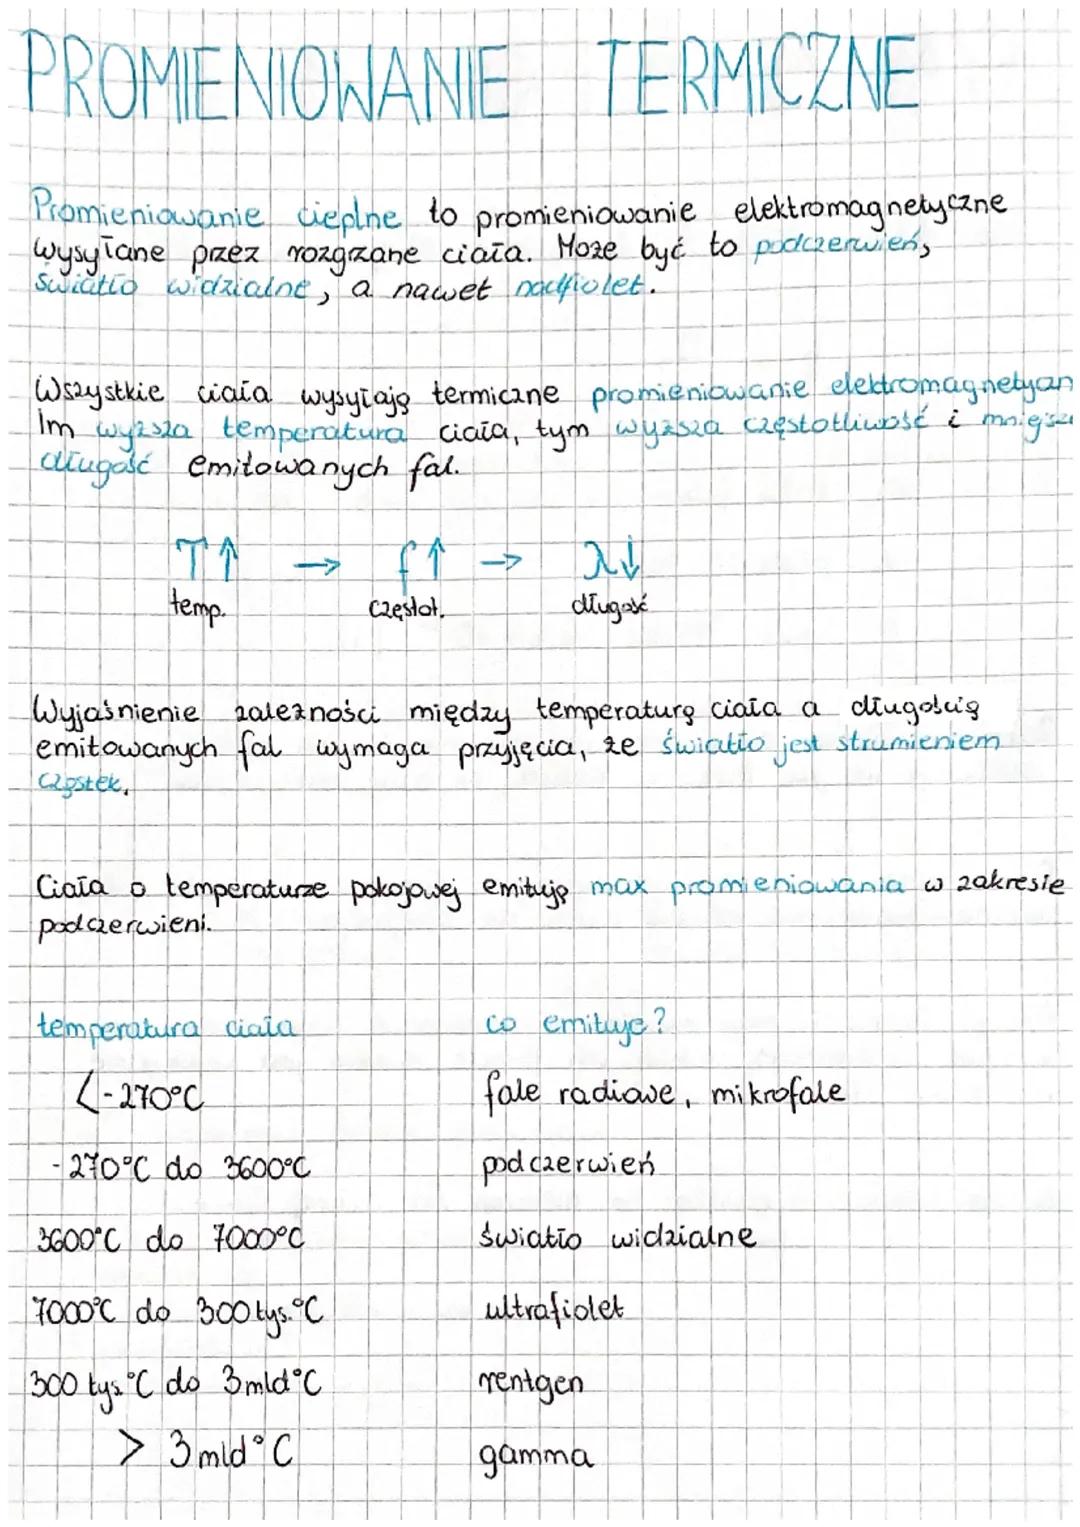 PROMIENIOWANIE TERMICZNE
Promieniowanie cieplne to promieniowanie elektromagnetyczne
wysyłane przez rozgrzane ciała. Może być to podczerwień,
światło widzialne, a nawet nadfiolet.
Wszystkie ciała wysyłają termiczne promieniowanie elektromagnetyczn
Im wyższa temperatura ciała, tym wyższa częstotliwość i mniejsza
długość emitowanych fal.
T↑ → f↑ → λ↓
temp. częstot. długość
Wyjaśnienie zależności między temperaturą ciała a długością
emitowanych fal wymaga przyjęcia, że światło jest strumieniem
cząstek.
Ciała o temperaturze pokojowej emitują max promieniowania w zakresie
podczerwieni.
temperatura ciała co emituje?
<-270°C fale radiowe, mikrofale
-270°C do 3600°C podczerwień
3600°C do 7000°C światło widzialne
7000°C do 300 tys.°C ultrafiolet
300 tys.°C do 3mld°C rentgen
> 3mld°C gamma